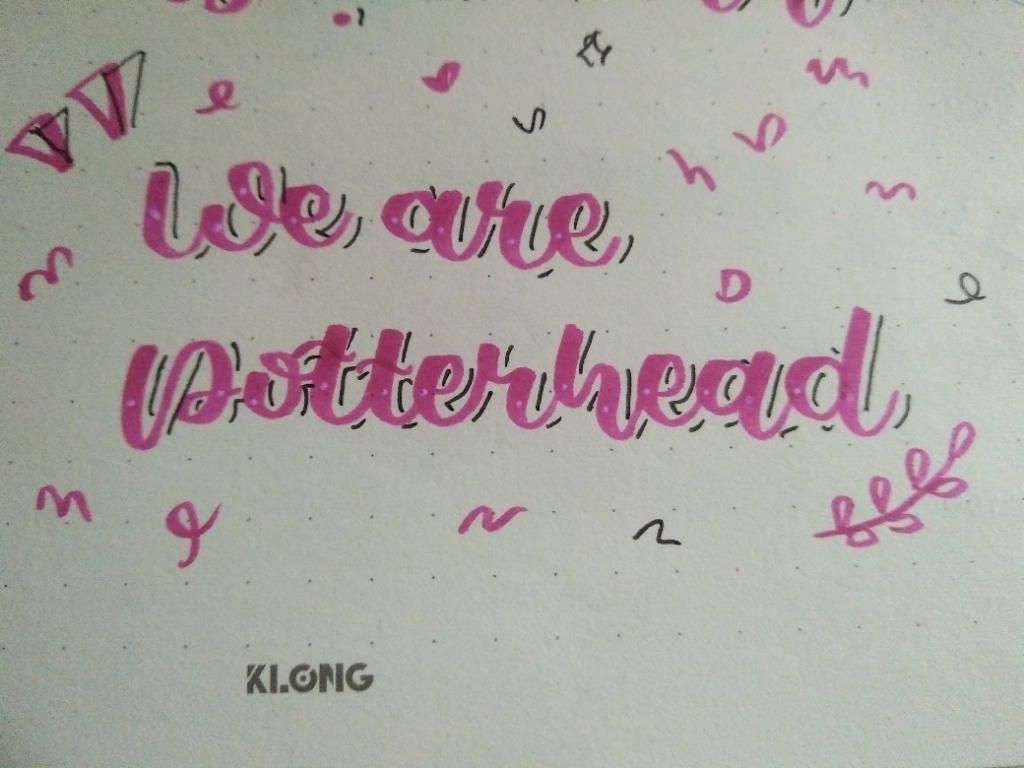 We are
potterhead
KLONG